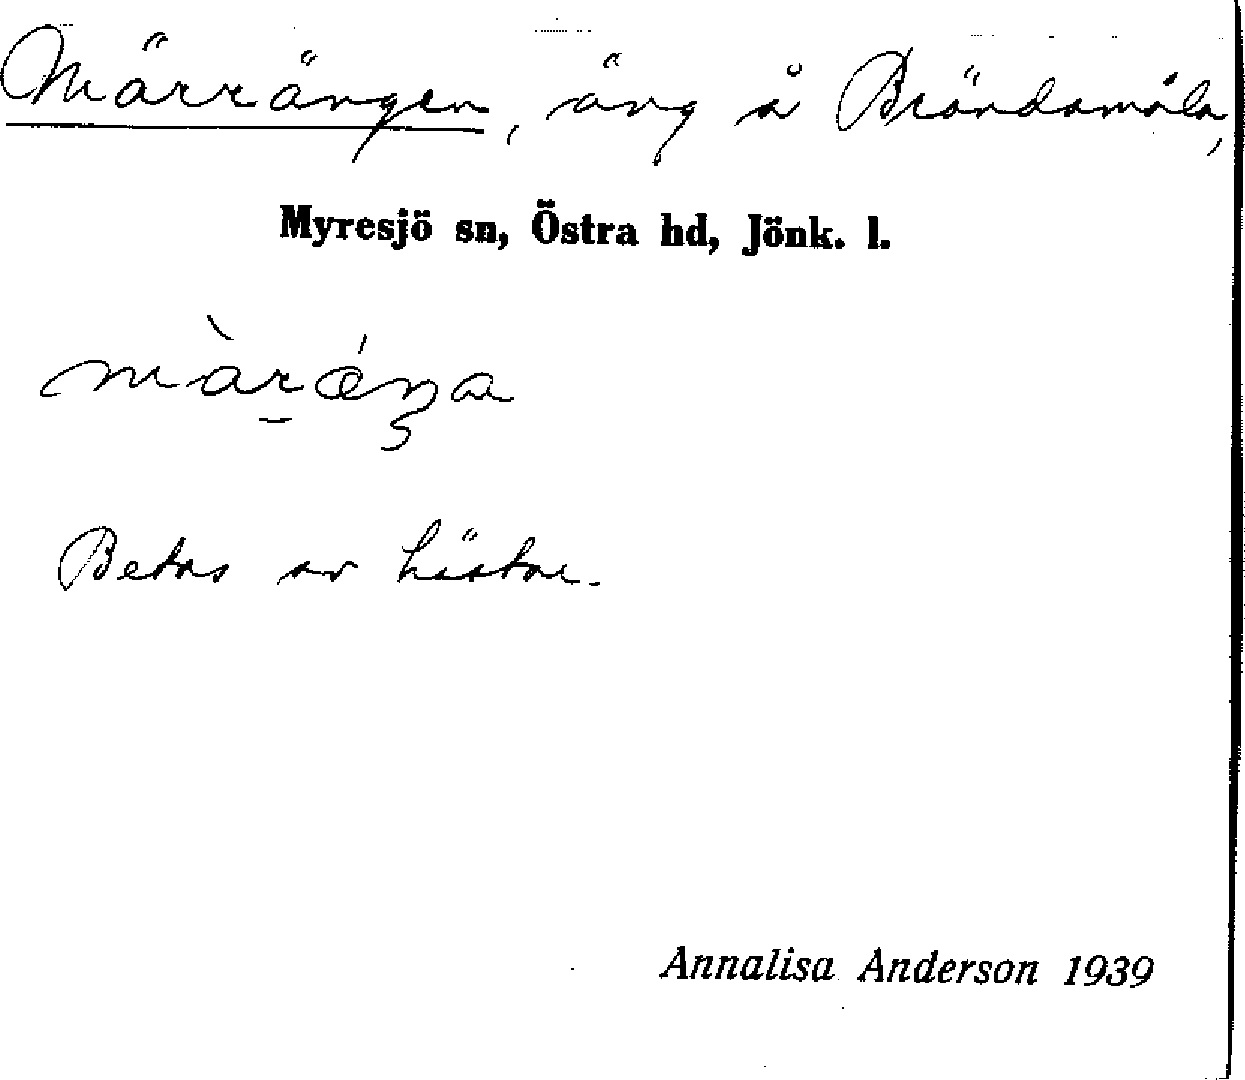 Märrängen, äng å Brändamåla,
Myresjö sn, Östra hd, Jönk. l.
Betas av hästar.
Annalisa Anderson 1939